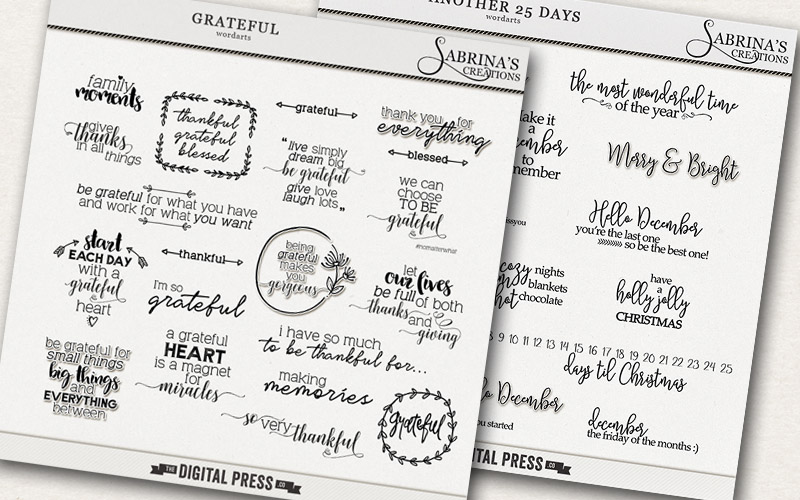 GRATEFUL
wordarts
SABRINA'S
CREATIONS
family
moments
thankful
grateful
blessed
grateful
thank you for
everything
give
thanks
in all things
"live simply
dream big
be grateful
give love
laugh lots"
blessed
we can
choose
TO BE
grateful
#nomatterwhat
be grateful for what you have
and work for what you want
start
EACH DAY
with a
grateful
heart
thankful
I'm so
grateful
being
grateful
makes
you
gorgeous
let
our lives
be full of both
thanks and
giving
be grateful for
small things
big things
and
EVERYTHING
between
a grateful
HEART
is a magnet
for
miracles
i have so much
to be thankful for...
making
memories
so very thankful
grateful
THE DIGITAL PRESS .CO
ANOTHER 25 DAYS
wordarts
SABRINA'S
CREATIONS
the most wonderful time
of the year
a
to
Merry & Bright
Hello December
you're the last one
so be the best one!
cozy nights
blankets
hot chocolate
have
a
holly jolly
CHRISTMAS
14 15 16 17 18 19 20 21 22 23 24 25
days til Christmas
December
started
december
the friday of the months :)
DIGITAL PRESS .CO